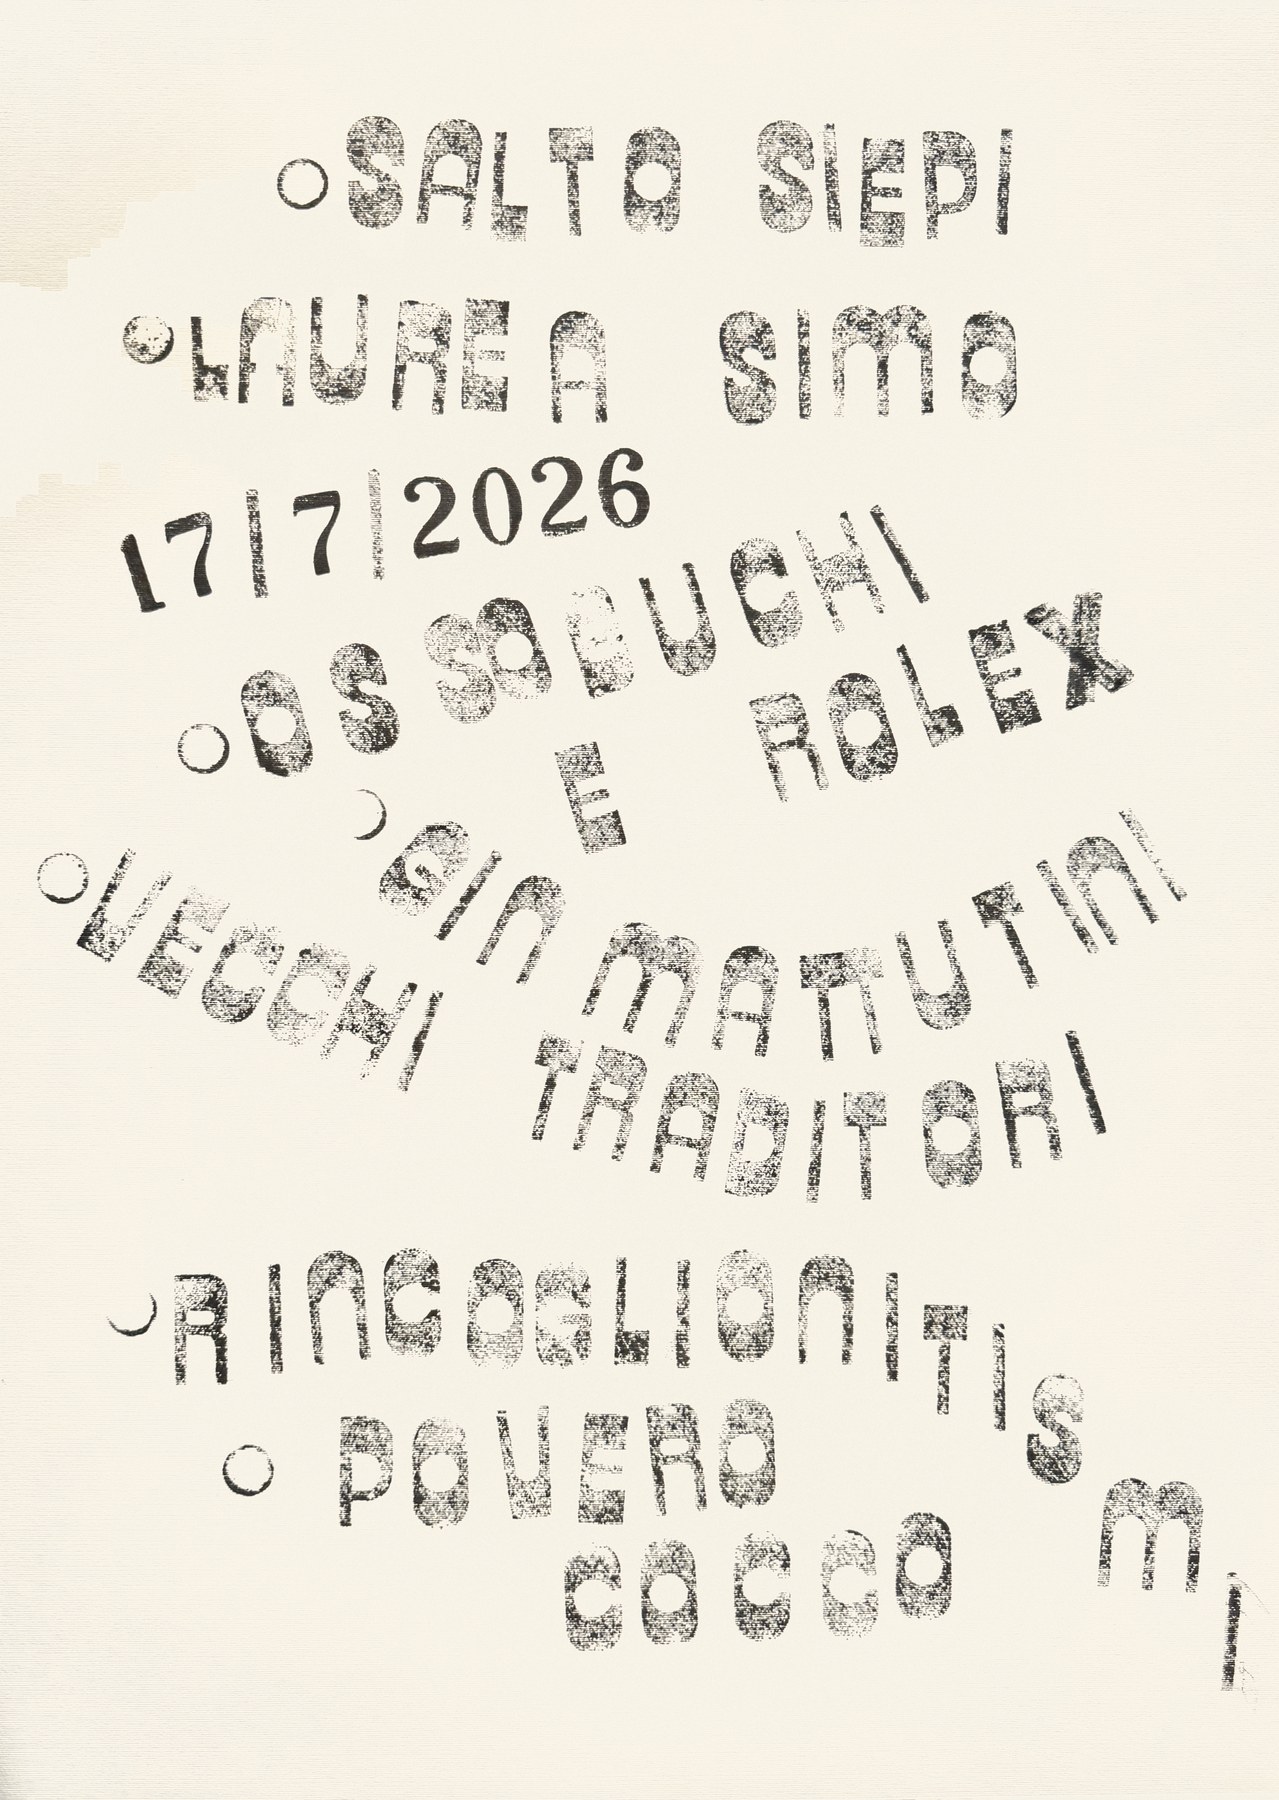 SALTO SIEPI
LAUREA SIMO
17|7|2026
OSSOBUCHI
E ROLEX
GIN MATTUTINI
VECCHI TRADITORI
RINCOGLIONITISMI
POVERO
COCCO